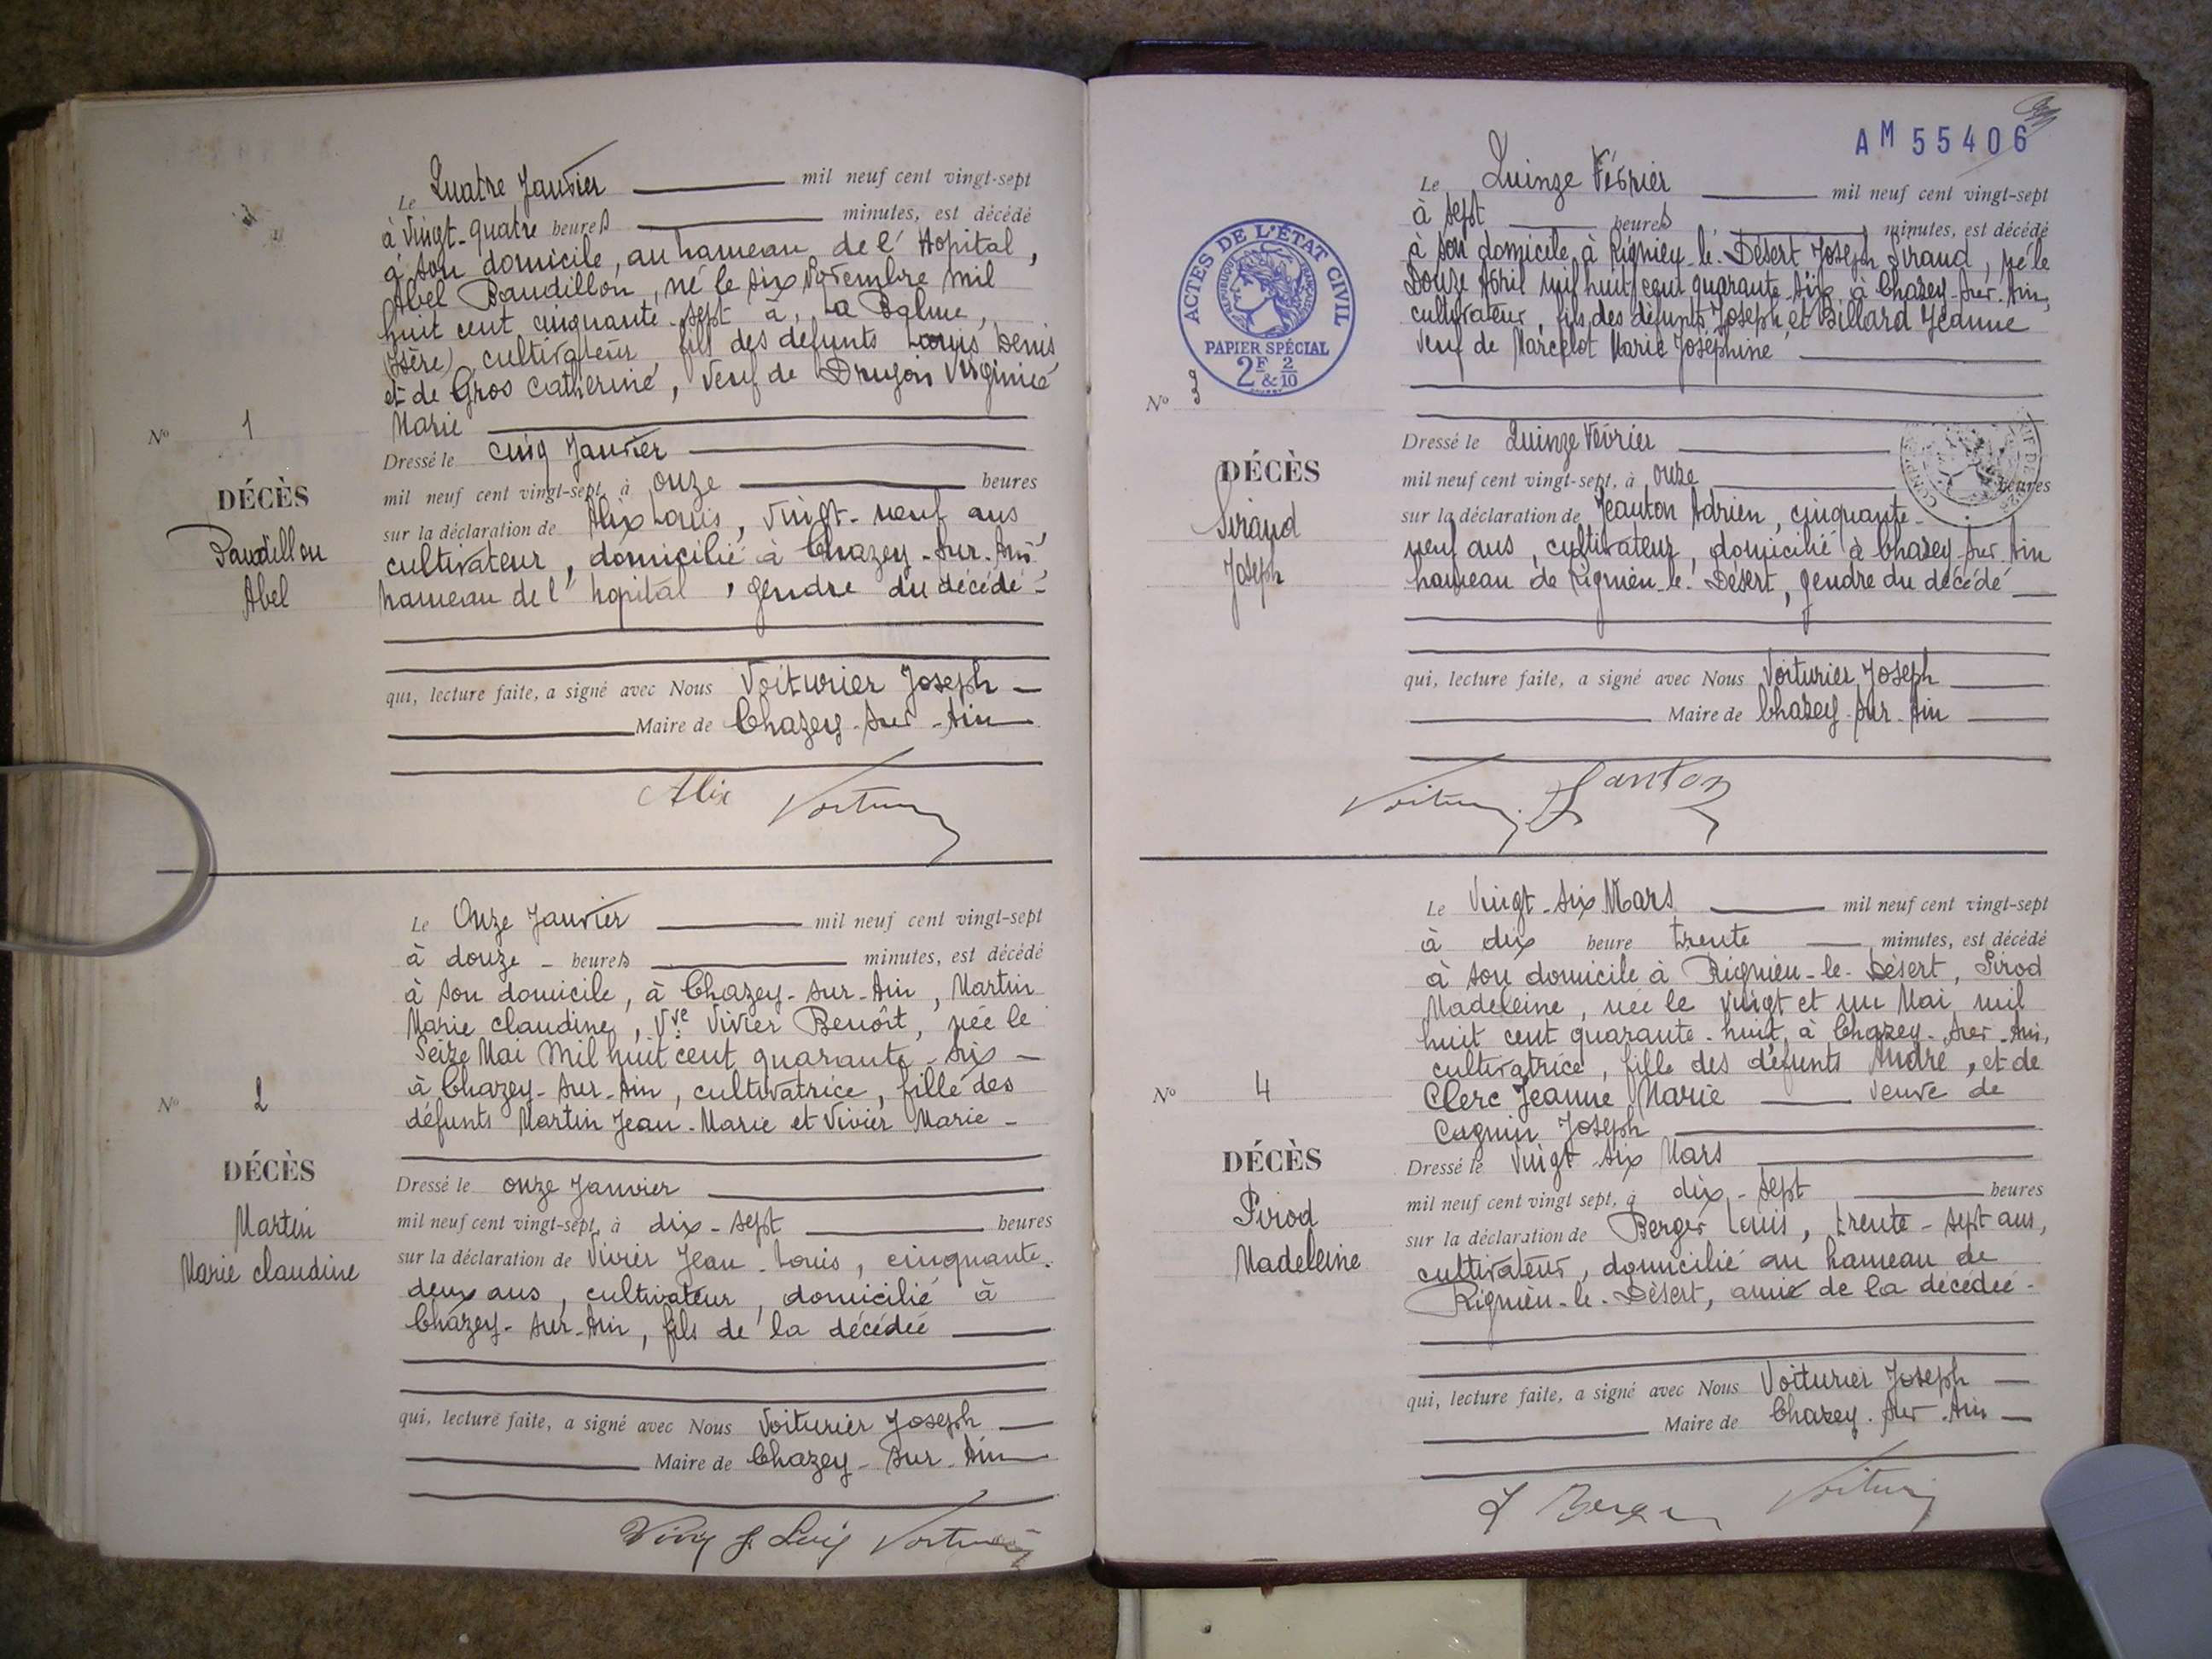 Le Quatre Janvier mil neuf cent vingt-sept
à vingt-quatre heures minutes, est décédé
à son domicile, au hameau de l'Hopital,
Abel Baudillon, né le six Novembre mil
huit cent cinquante-sept à La Balme,
(Isère) cultivateur fils des défunts Louis Denis
et de Gros Catherine, veuf de Drujon Virginie
Marie
Nº 1
Dressé le cinq Janvier
mil neuf cent vingt-sept, à onze heures
DÉCÈS
sur la déclaration de Alix Louis, vingt-neuf ans
Baudillon
cultivateur, domicilié à Chazey-sur-Ain,
Abel
hameau de l'hopital, gendre du décédé-
qui, lecture faite, a signé avec Nous Voiturier Joseph
Maire de Chazey-sur-Ain
Alix Voiturier
Le Onze Janvier mil neuf cent vingt-sept
à douze - heures minutes, est décédé
à son domicile, à Chazey-sur-Ain, Martin
Marie Claudine, Vve Vivier Benoît, née le
Seize Mai mil huit cent quarante-six -
à Chazey-sur-Ain, cultivatrice, fille des
Nº 2
défunts Martin Jean-Marie et Vivier Marie -
DÉCÈS
Dressé le onze Janvier
Martin
mil neuf cent vingt-sept, à dix-sept heures
Marie Claudine
sur la déclaration de Vivier Jean-Louis, cinquante-
deux ans, cultivateur, domicilié à
Chazey-sur-Ain, fils de la décédée
qui, lecture faite, a signé avec Nous Voiturier Joseph
Maire de Chazey-sur-Ain
Vivier J. Louis Voiturier
AM 55406
Le Quinze Février mil neuf cent vingt-sept
à sept heures minutes, est décédé
à son domicile à Rignieu-le-Désert Joseph Siraud, né le
Douze Avril mil huit cent quarante-six à Chazey-sur-Ain,
cultivateur, fils des défunts Joseph et Billard Jeanne
veuf de Marcelot Marie Joséphine
ACTES DE L'ÉTAT CIVIL
RÉPUBLIQUE FRANÇAISE
PAPIER SPÉCIAL
2F & 2/10
Nº 3
Dressé le Quinze Février
DÉCÈS
mil neuf cent vingt-sept, à onze heures
Siraud
sur la déclaration de Jeanton Adrien, cinquante-
neuf ans, cultivateur, domicilié à Chazey-sur-Ain
Joseph
hameau de Rignieu-le-Désert, gendre du décédé
qui, lecture faite, a signé avec Nous Voiturier Joseph
Maire de Chazey-sur-Ain
Voiturier Janton
Le Vingt-six Mars mil neuf cent vingt-sept
à dix heure trente minutes, est décédé
à son domicile à Rignieu-le-Désert, Pirod
Madeleine, née le vingt et un Mai mil
huit cent quarante-huit, à Chazey-sur-Ain,
cultivatrice, fille des défunts André, et de
Nº 4
Clerc Jeanne Marie veuve de
Cagnin Joseph
DÉCÈS
Dressé le vingt-six Mars
Pirod
mil neuf cent vingt sept, à dix-sept heures
Madeleine
sur la déclaration de Berger Louis, trente-sept ans,
cultivateur, domicilié au hameau de
Rignieu-le-Désert, ami de la décédée -
qui, lecture faite, a signé avec Nous Voiturier Joseph
Maire de Chazey-sur-Ain
L Berger Voiturier